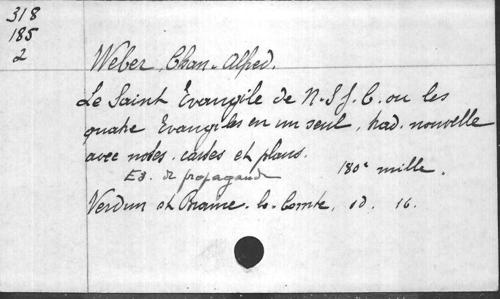 318
185
2
Weber, Chan. Alfred.
Le Saint Evangile de N.-S. J. C. ou les
quatre Evangiles en un seul, trad. nouvelle
avec notes, cartes et plans.
Ed. de propagande 180e mille.
Verdun et Braine-le-Comte, id. 16.